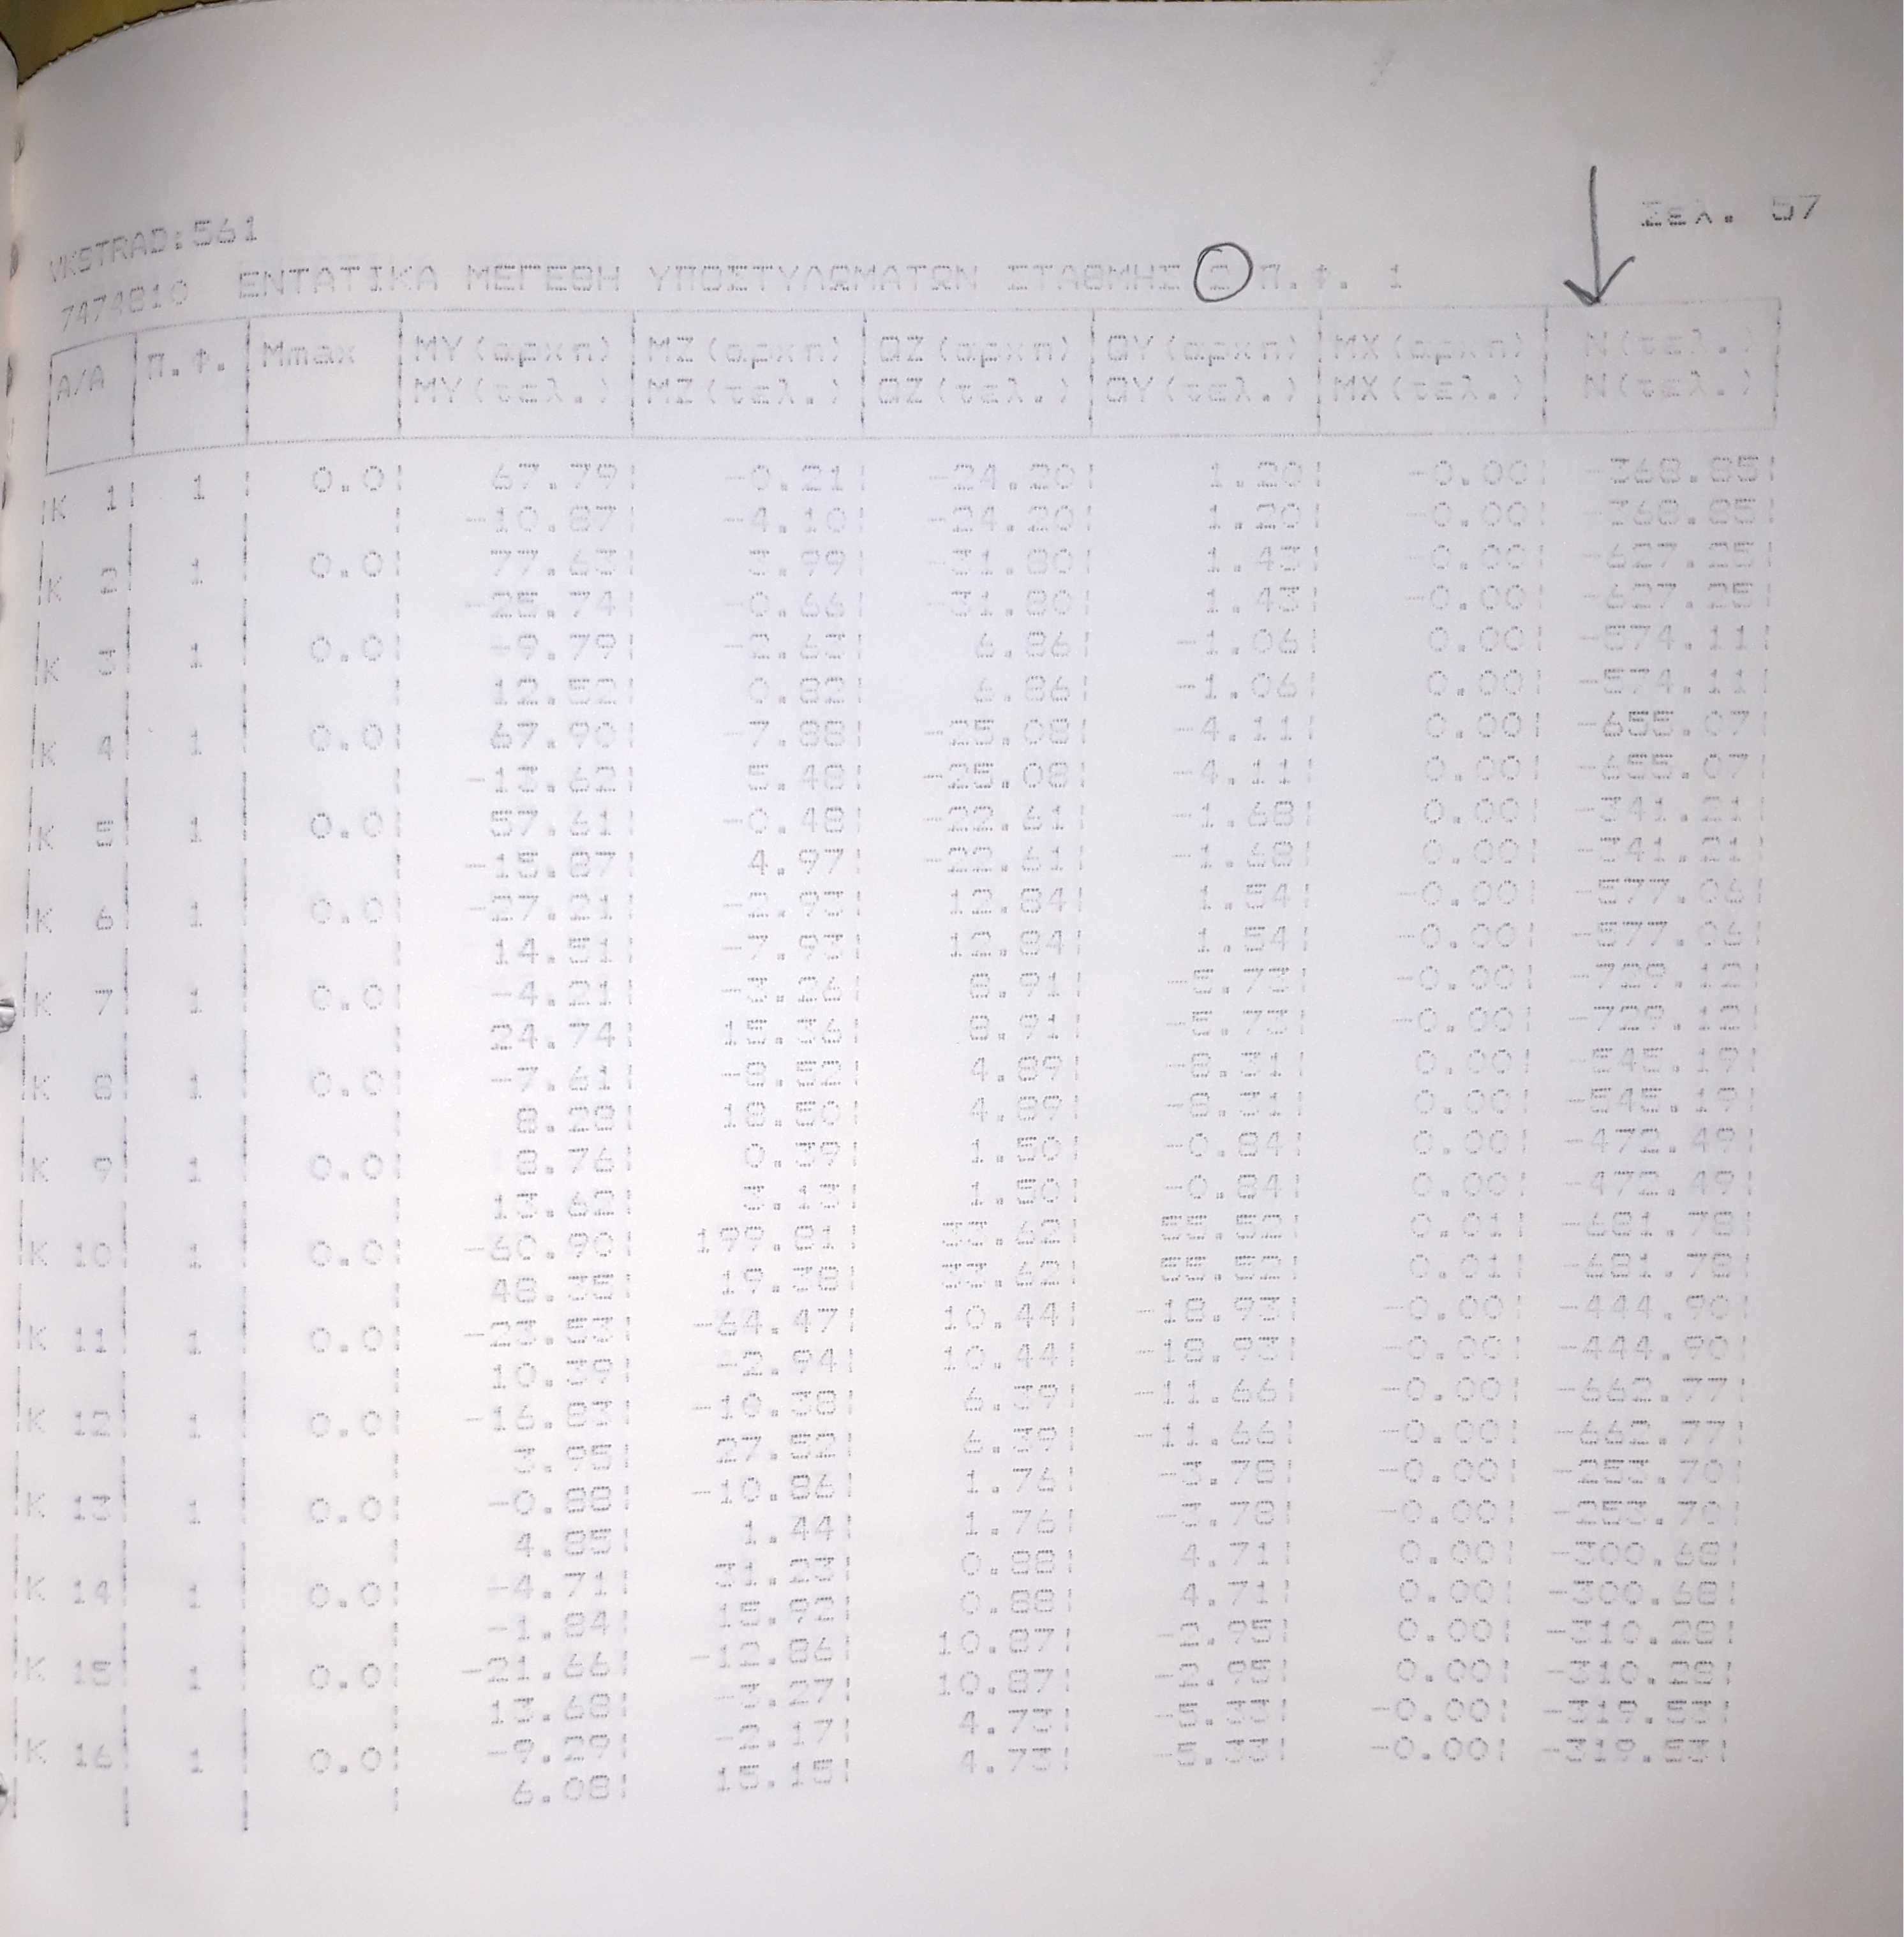 Σελ. 57
VKSTRAD:561
7474810 ΕΝΤΑΤΙΚΑ ΜΕΓΕΘΗ ΥΠΟΣΤΥΛΩΜΑΤΩΝ ΣΤΑΘΜΗΣ Π.Φ. 1
A/A Π.Φ. Mmax MY(αρχη) MZ(αρχη) QZ(αρχη) QY(αρχη) MX(αρχη) N(τελ.)
MY(τελ.) MZ(τελ.) QZ(τελ.) QY(τελ.) MX(τελ.) N(τελ.)
K 1 1 0.0 67.79 -0.21 -24.20 1.20 -0.00 -368.85
-10.87 -4.10 -24.20 1.20 -0.00 -368.85
K 2 1 0.0 77.63 3.99 -31.80 1.43 -0.00 -627.25
-25.74 -0.66 -31.80 1.43 -0.00 -627.25
K 3 1 0.0 -9.79 -2.63 6.86 -1.06 0.00 -574.11
12.52 0.82 6.86 -1.06 0.00 -574.11
K 4 1 0.0 67.90 -7.88 -25.08 -4.11 0.00 -655.07
-13.62 5.48 -25.08 -4.11 0.00 -655.07
K 5 1 0.0 57.61 -0.48 -22.61 -1.68 0.00 -341.21
-15.87 4.97 -22.61 -1.68 0.00 -341.21
K 6 1 0.0 -27.21 -2.93 12.84 1.54 -0.00 -577.06
14.51 -7.93 12.84 1.54 -0.00 -577.06
K 7 1 0.0 -4.21 -3.26 8.91 -5.73 -0.00 -729.12
24.74 15.36 8.91 -5.73 -0.00 -729.12
K 8 1 0.0 -7.61 -8.52 4.89 -8.31 0.00 -545.19
8.28 18.50 4.89 -8.31 0.00 -545.19
K 9 1 0.0 8.76 0.39 1.50 -0.84 0.00 -472.49
13.62 3.13 1.50 -0.84 0.00 -472.49
K 10 1 0.0 -60.90 199.81 33.62 55.52 0.01 -681.78
48.35 19.38 33.62 55.52 0.01 -681.78
K 11 1 0.0 -23.53 -64.47 10.44 -18.93 -0.00 -444.90
10.39 -2.94 10.44 -18.93 -0.00 -444.90
K 12 1 0.0 -16.83 -10.38 6.39 -11.66 -0.00 -662.77
3.95 27.52 6.39 -11.66 -0.00 -662.77
K 13 1 0.0 -0.88 -10.86 1.76 -3.78 -0.00 -253.70
4.85 1.44 1.76 -3.78 -0.00 -253.70
K 14 1 0.0 -4.71 31.23 0.88 4.71 0.00 -300.68
-1.84 15.92 0.88 4.71 0.00 -300.68
K 15 1 0.0 -21.66 -12.86 10.87 -2.95 0.00 -310.28
13.68 -3.27 10.87 -2.95 0.00 -310.28
K 16 1 0.0 -9.29 -2.17 4.73 -5.33 -0.00 -319.53
6.08 15.15 4.73 -5.33 -0.00 -319.53